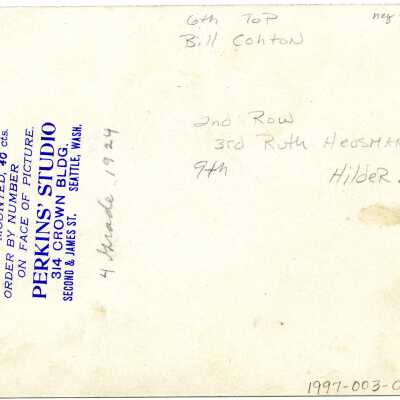 6th Top
Bill Cohton
neg
2nd Row
3rd Ruth
9th Hilder
MOUNTED, 40 cts.
ORDER BY NUMBER
ON FACE OF PICTURE.
PERKINS' STUDIO
314 CROWN BLDG.
SECOND & JAMES ST. SEATTLE, WASH.
4 Grade 1924
1997-003-0